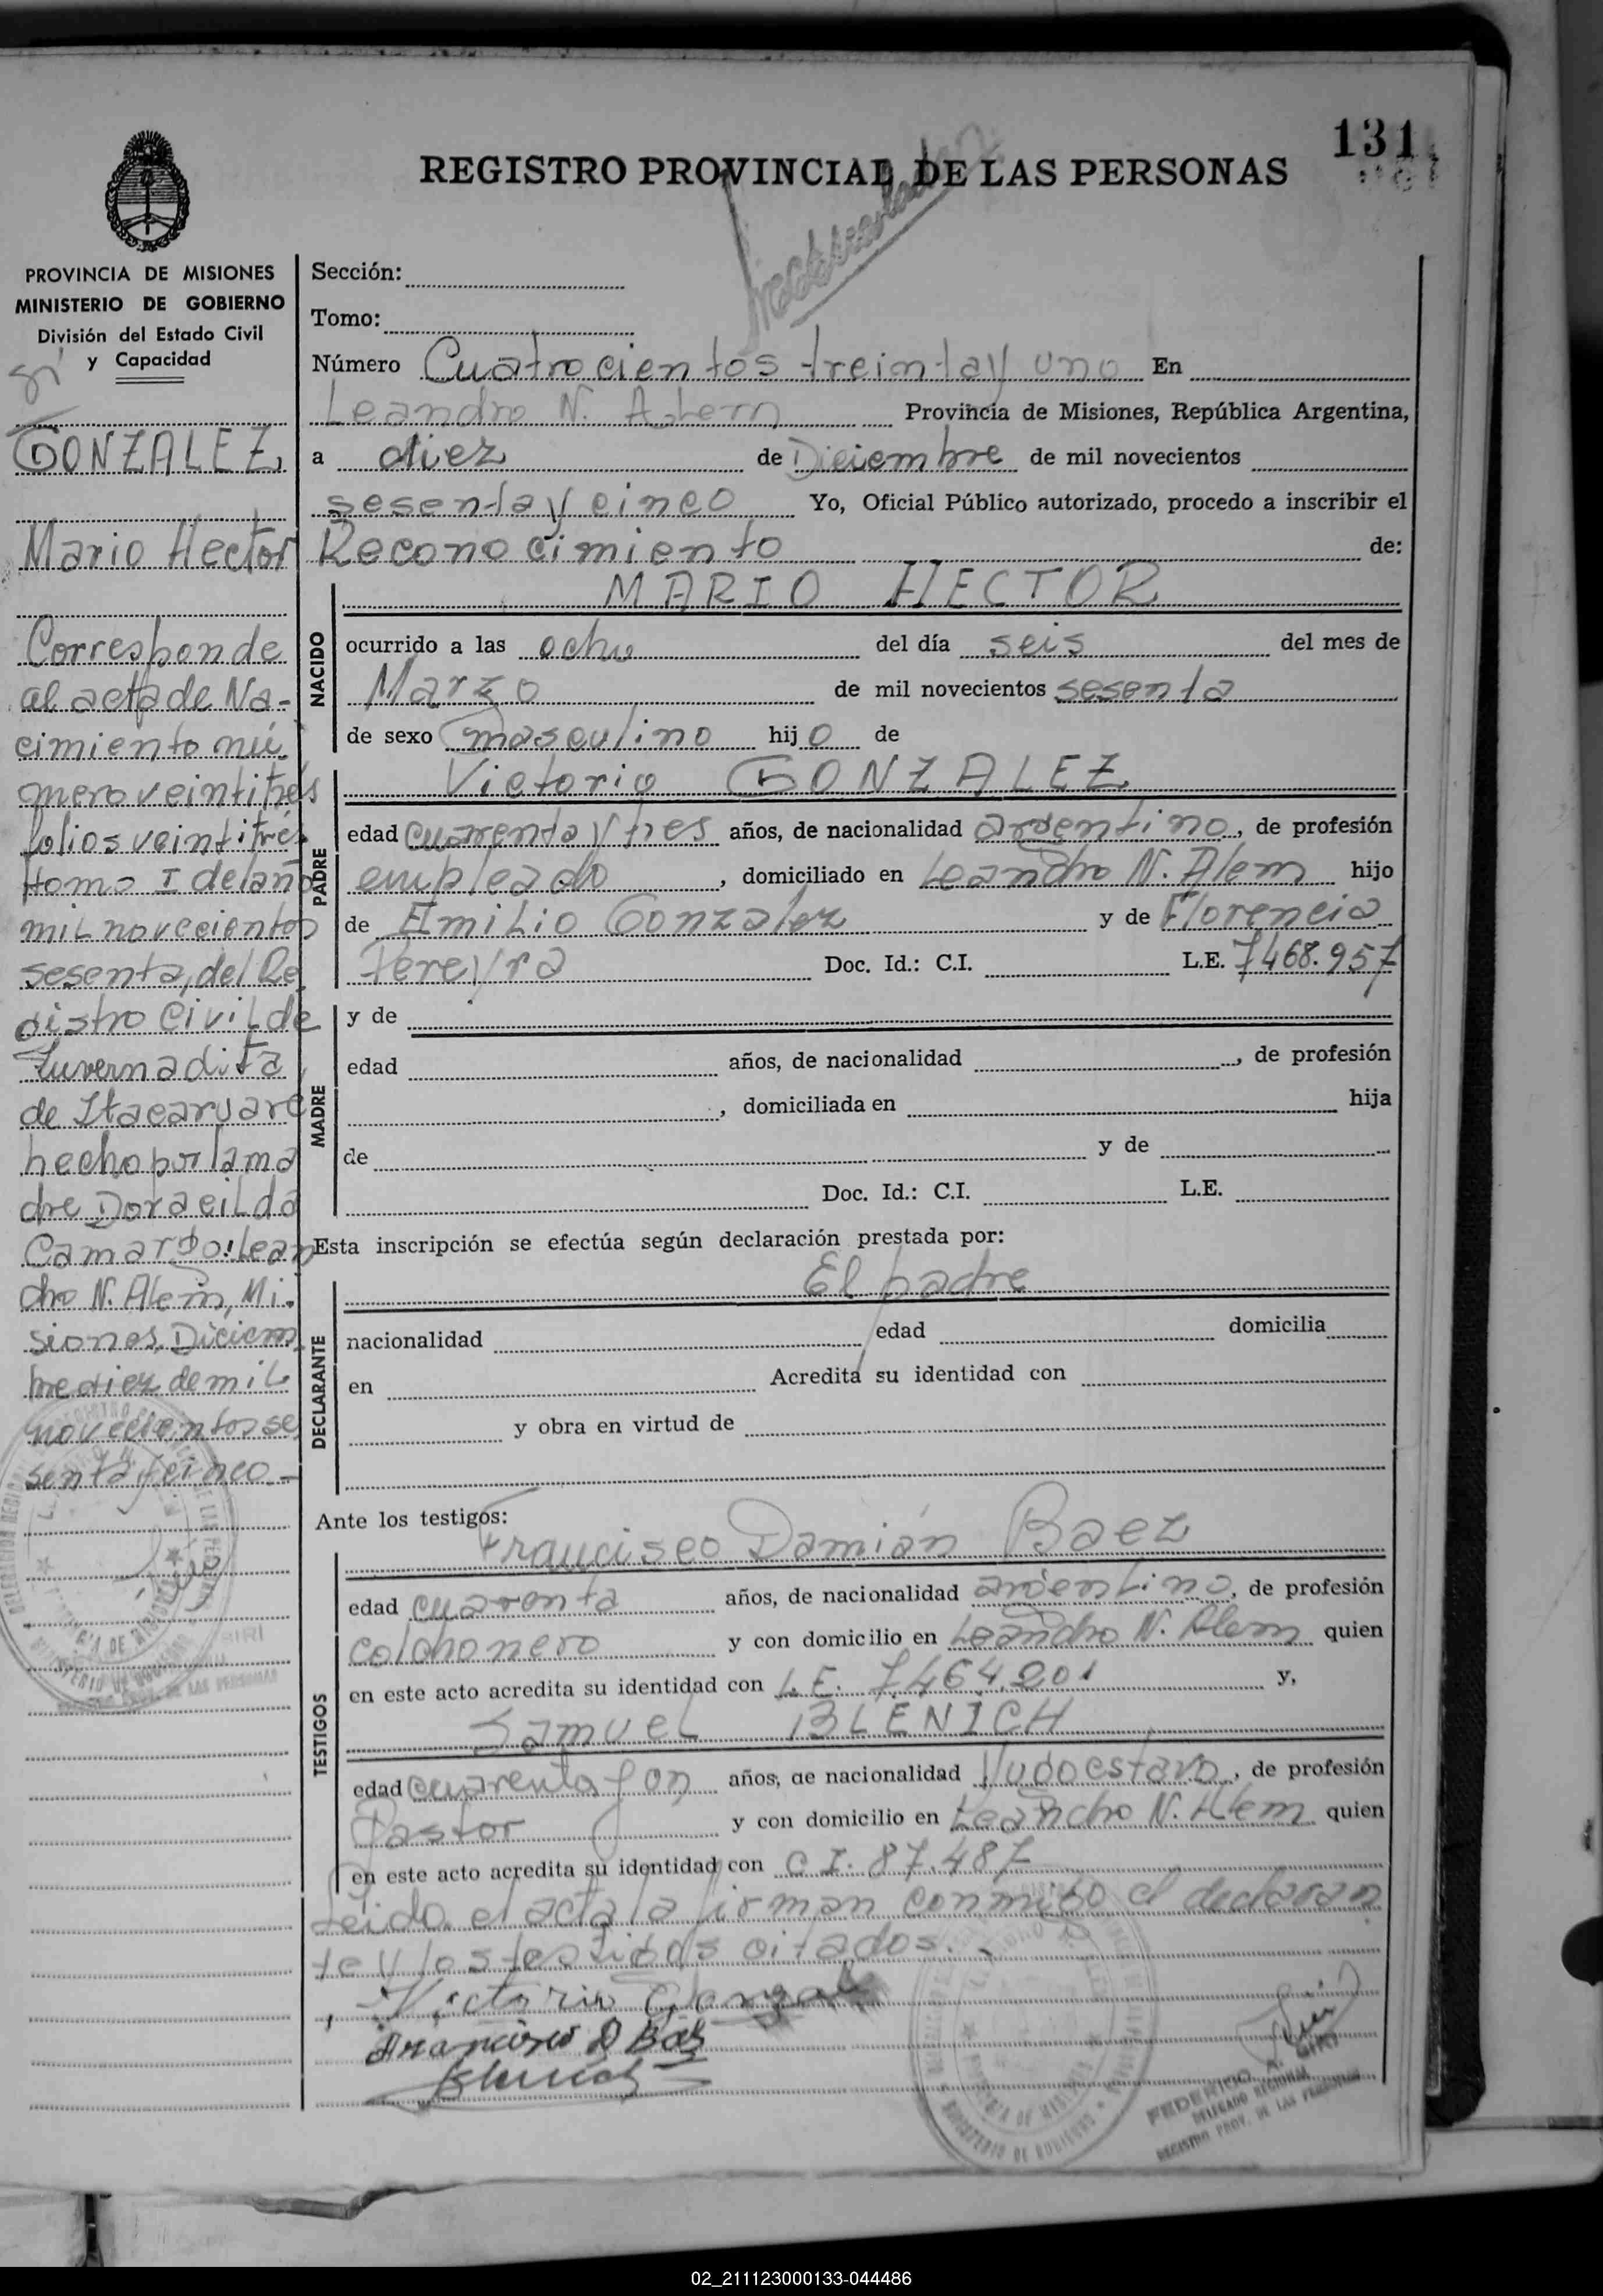 131
REGISTRO PROVINCIAL DE LAS PERSONAS
PROVINCIA DE MISIONES
MINISTERIO DE GOBIERNO
División del Estado Civil
y Capacidad
GONZALEZ,
Mario Hector
Corresponde
al acta de Na-
cimiento nú
mero veintitrés
folios veintitrés
tomo I del año
mil novecientos
sesenta, del Re
gistro Civil de
de Itacaruare
hecho por la ma
dre Doracilda
Camargo. Lean
dro N. Alem, Mi-
siones, Diciem
bre diez de mil
novecientos se
senta y cinco -
Sección:
Tomo:
Número Cuatrocientos treinta y uno En
Leandro N. Alem Provincia de Misiones, República Argentina,
a diez de Diciembre de mil novecientos
sesenta y cinco Yo, Oficial Público autorizado, procedo a inscribir el
Reconocimiento de:
NACIDO
MARIO HECTOR
ocurrido a las ocho del día seis del mes de
Marzo de mil novecientos sesenta
de sexo masculino hijo de
PADRE
Victorio GONZALEZ
edad cuarenta y tres años, de nacionalidad argentino, de profesión
empleado, domiciliado en Leandro N. Alem hijo
de Emilio Gonzalez y de Florencia
Pereyra Doc. Id.: C.I. L.E. 7468.957
MADRE
y de
edad años, de nacionalidad , de profesión
, domiciliada en hija
de y de
Doc. Id.: C.I. L.E.
Esta inscripción se efectúa según declaración prestada por:
DECLARANTE
El padre
nacionalidad edad domicilia
en Acredita su identidad con
y obra en virtud de
Ante los testigos:
TESTIGOS
Francisco Damián Baez
edad cuarenta años, de nacionalidad argentino, de profesión
colchonero y con domicilio en Leandro N. Alem quien
en este acto acredita su identidad con L.E. 7464.201 y,
Samuel BLENICH
edad cuarenta y un años, de nacionalidad Yudoestavo, de profesión
Pastor y con domicilio en Leandro N. Alem quien
en este acto acredita su identidad con C I. 87.487
Leida el acta la firman conmigo el declaran
te y los testigos citados.
Victorio Gonzalez
Francisco D Baez
Blenich
FEDERICO A. SIRI
DELEGADO REGIONAL
REGISTRO PROV. DE LAS PERSONAS
02_211123000133-044486